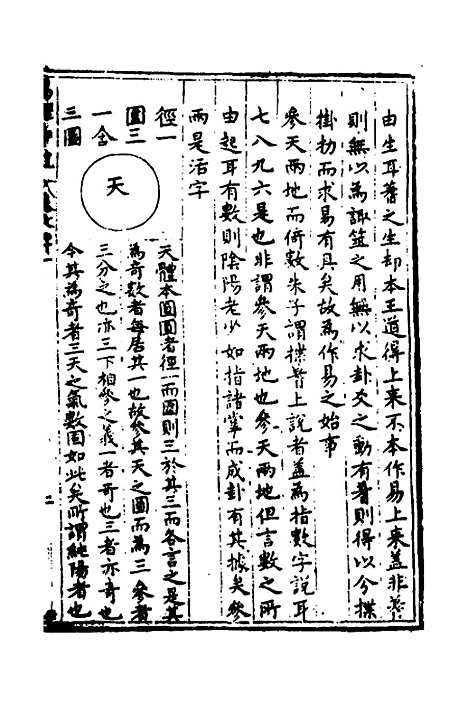 由生耳蓍之生却本王道得上来不本作易上来盖非蓍
則無以為諏筮之用無以求卦爻之動有蓍則得以分揲
掛扐而求易有具矣故為作易之始事
參天兩地而倚數朱子謂揲蓍上說者盖為指數字說耳
七八九六是也非謂參天兩地也參天兩地但言數之所
由起耳有數則陰陽老少如指諸掌而成卦有其據矣參
兩是活字
徑一
圍三
一含
三圍
天
天體本圓圓者徑一而圍則三於其三而各言之是其
為奇數者每居其一也故參其天之圍而為三參者
三分之也亦三下相參之義一者奇也三者亦奇也
今其為奇者三天之氣數固如此矣所謂純陽者也
二